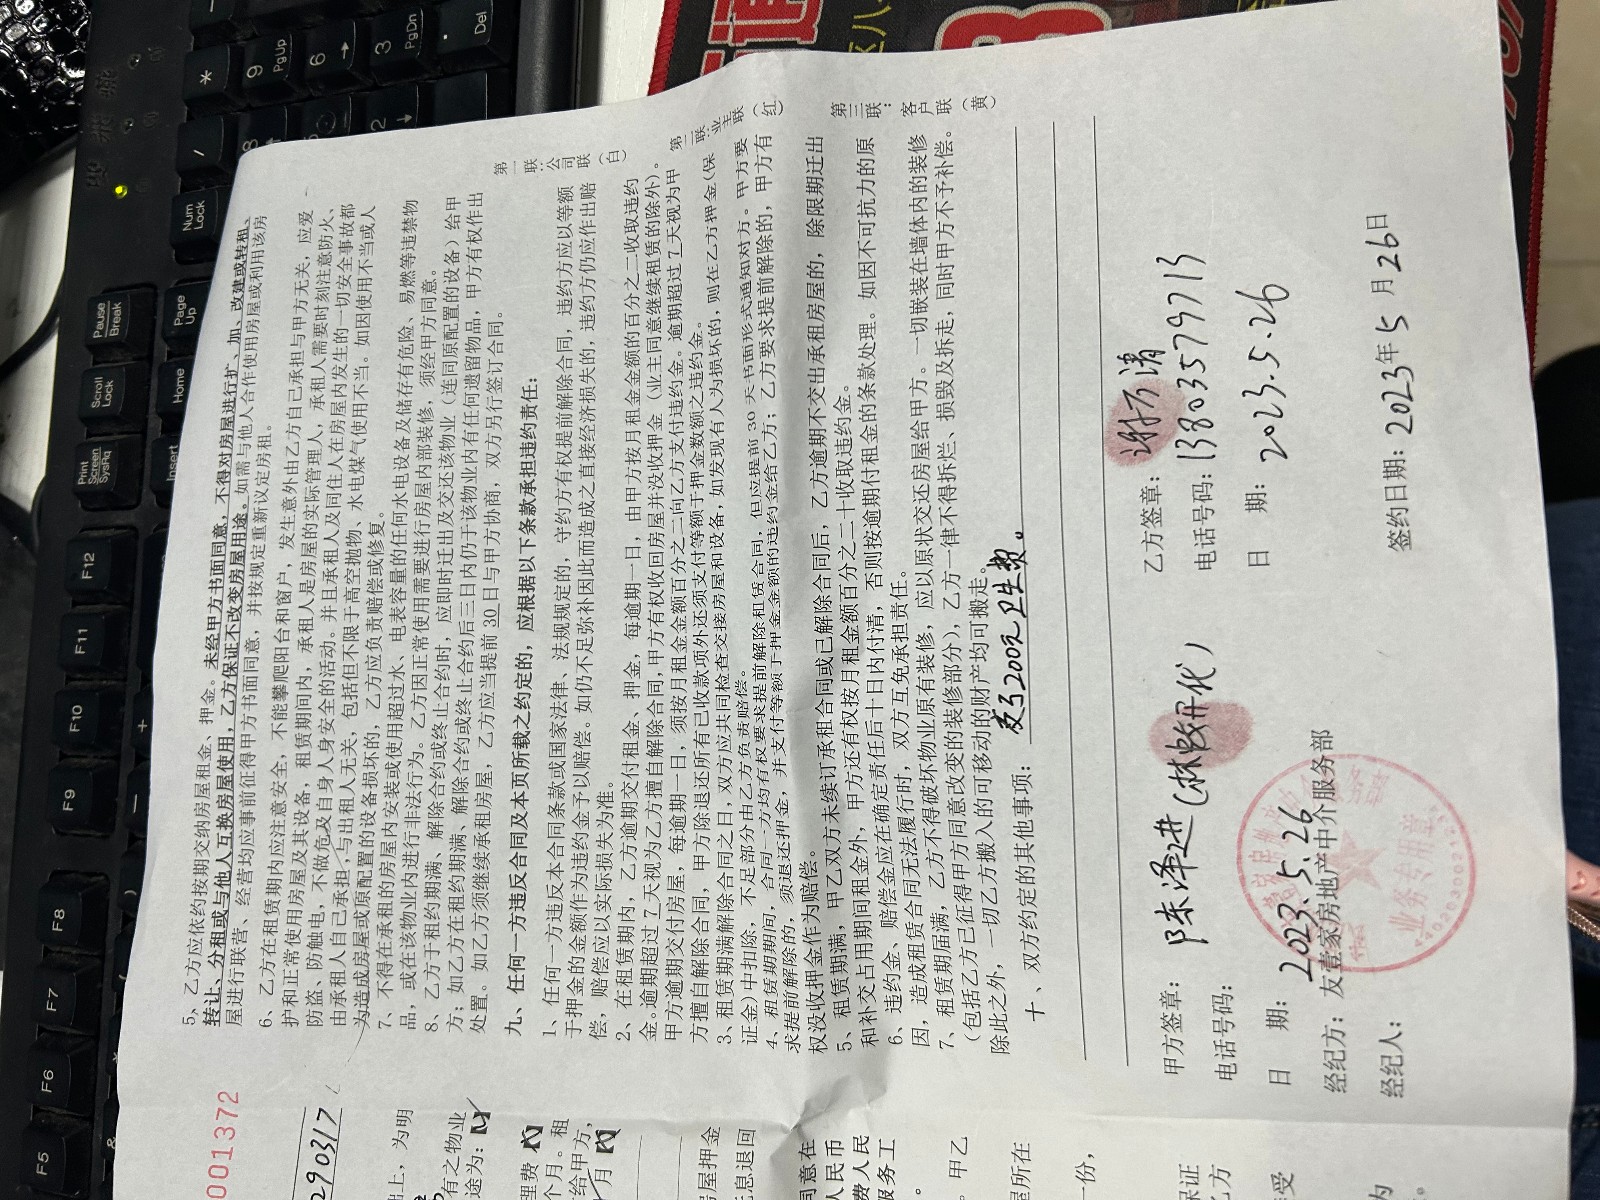 5、乙方应依约按期交纳房屋租金、押金。未经甲方书面同意，不得对房屋进行扩、加、改建或转租、
转让、分租或与他人互换房屋使用，乙方保证不改变房屋用途。如需与他人合作使用房屋或利用该房
屋进行联营、经营均应事前征得甲方书面同意，并按规定重新议定房租。
6、乙方在租赁期内应注意安全，不能攀爬阳台和窗户，发生意外由乙方自己承担与甲方无关，应爱
护和正常使用房屋及其设备，租赁期间内，承租人是房屋的实际管理人，承租人需要时刻注意防火、
防盗、防触电，不做危及自身人身安全的活动。并且承租人及同住人在房屋内发生的一切安全事故都
由承租人自己承担，与出租人无关，包括但不限于高空抛物、水电煤气使用不当。如因使用不当或人
为造成房屋或原配置的设备损坏的，乙方应负责赔偿或修复。
7、不得在承租的房屋内安装或使用超过水、电表容量的任何水电设备及储存有危险、易燃等违禁物
品，或在该物业内进行非法行为。乙方因正常使用需要进行房屋内部装修，须经甲方同意。
8、乙方于租约期满、解除合约或终止合约时，应即时迁出及交还该物业（连同原配置的设备）给甲
方；如乙方在租约期满、解除合约或终止合约后三日内仍于该物业内有任何遗留物品，甲方有权作出
处置。如乙方须继续承租房屋，乙方应当提前 30 日与甲方协商，双方另行签订合同。
九、任何一方违反合同及本页所载之约定的，应根据以下条款承担违约责任：
1、任何一方违反本合同条款或国家法律、法规规定的，守约方有权提前解除合同，违约方应以等额
于押金的金额作为违约金予以赔偿。如仍不足弥补因此而造成之直接经济损失的，违约方仍应作出赔
偿，赔偿应以实际损失为准。
2、在租赁期内，乙方逾期交付租金、押金，每逾期一日，由甲方按月租金金额的百分之二收取违约
金。逾期超过 7 天视为乙方擅自解除合同，甲方有权收回房屋并没收押金（业主同意继续租赁的除外）。
甲方逾期交付房屋，每逾期一日，须按月租金金额百分之二向乙方支付违约金。逾期超过 7 天视为甲
方擅自解除合同，甲方除退还所有已收款项外还须支付等额于押金数额之违约金。
3、租赁期满解除合同之日，双方应共同检查交接房屋和设备，如发现有人为损坏的，则在乙方押金（保
证金）中扣除，不足部分由乙方负责赔偿。
4、租赁期期间，合同一方均有权要求提前解除和租赁合同，但应提前 30 天书面形式通知对方。甲方要
求提前解除的，须退还押金，并支付等额于押金金额的违约金给乙方；乙方要求提前解除的，甲方有
权没收押金作为赔偿。
5、租赁期满，甲乙双方未续订承租合同或已解除合同后，乙方逾期不交出承租房屋的，除限期迁出
和补交占用期间租金外，甲方还有权按月租金额百分之二十收取违约金。
6、违约金、赔偿金应在确定责任后十日内付清，否则按逾期付租金的条款处理。如因不可抗力的原
因，造成租赁合同无法履行时，双方互免承担责任。
7、租赁期届满，乙方不得破坏物业原有装修，应以原状交还房屋给甲方。一切嵌装在墙体内的装修
（包括乙方已征得甲方同意改变的装修部分），乙方一律不得拆烂、损毁及拆走，同时甲方不予补偿。
除此之外，一切乙方搬入的可移动的财产均可搬走。
十、双方约定的其他事项：
200元卫生费。
甲方签章：陈泽进（林 代）
乙方签章：谢万清
电话号码：
电话号码：13803579713
日 期：2023.5.26
日 期：2023.5.26
经纪方：友壹家房地产中介服务部
经纪人：
签约日期：2023年5月26日
业务专用章
第一联：公司联（白）
第二联：业主联（红）
第三联：客户联（黄）
001372
290317
上，为明
有之物业
途为：
理费
个月。租
给甲方，
月
屋押金
息退回
同意在
人民币
费人民
服务工
。甲乙
屋所在
一份，
保证
乙方
受
为
Print Screen SysRq
Scroll Lock
Pause Break
Insert
Home
Page Up
Num Lock
/
*
9 PgUp
6 →
3 PgDn
. Del
8
2 ↓
F5
F6
F7
F8
F9
F10
F11
F12